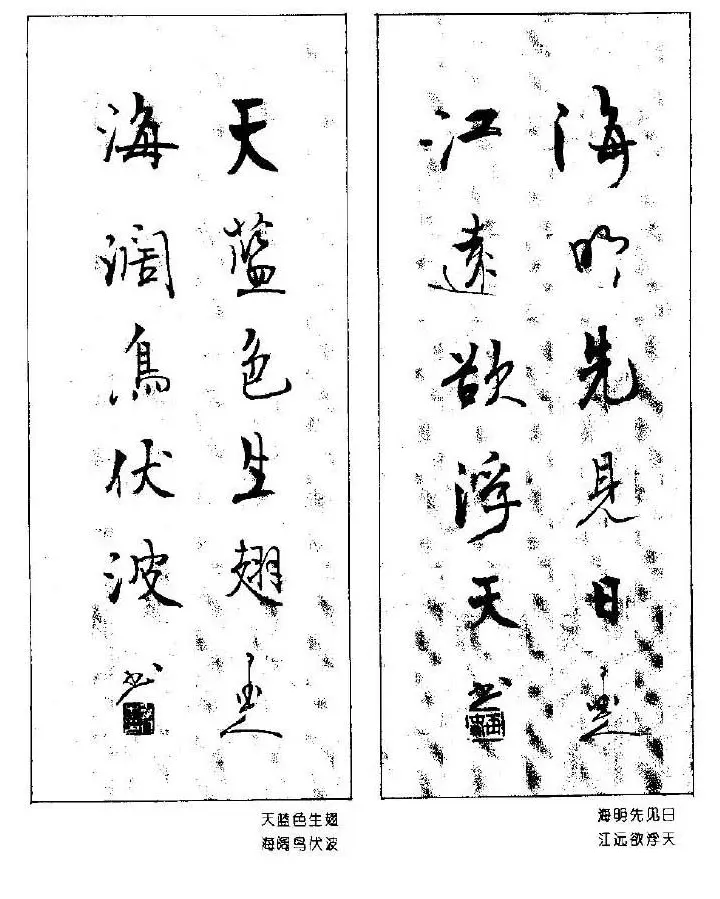 海明先見日
江遠欲浮天 书
天藍色生翅
海濶鳥伏波 书
海明先见日
江远欲浮天
天蓝色生翅
海阔鸟伏波